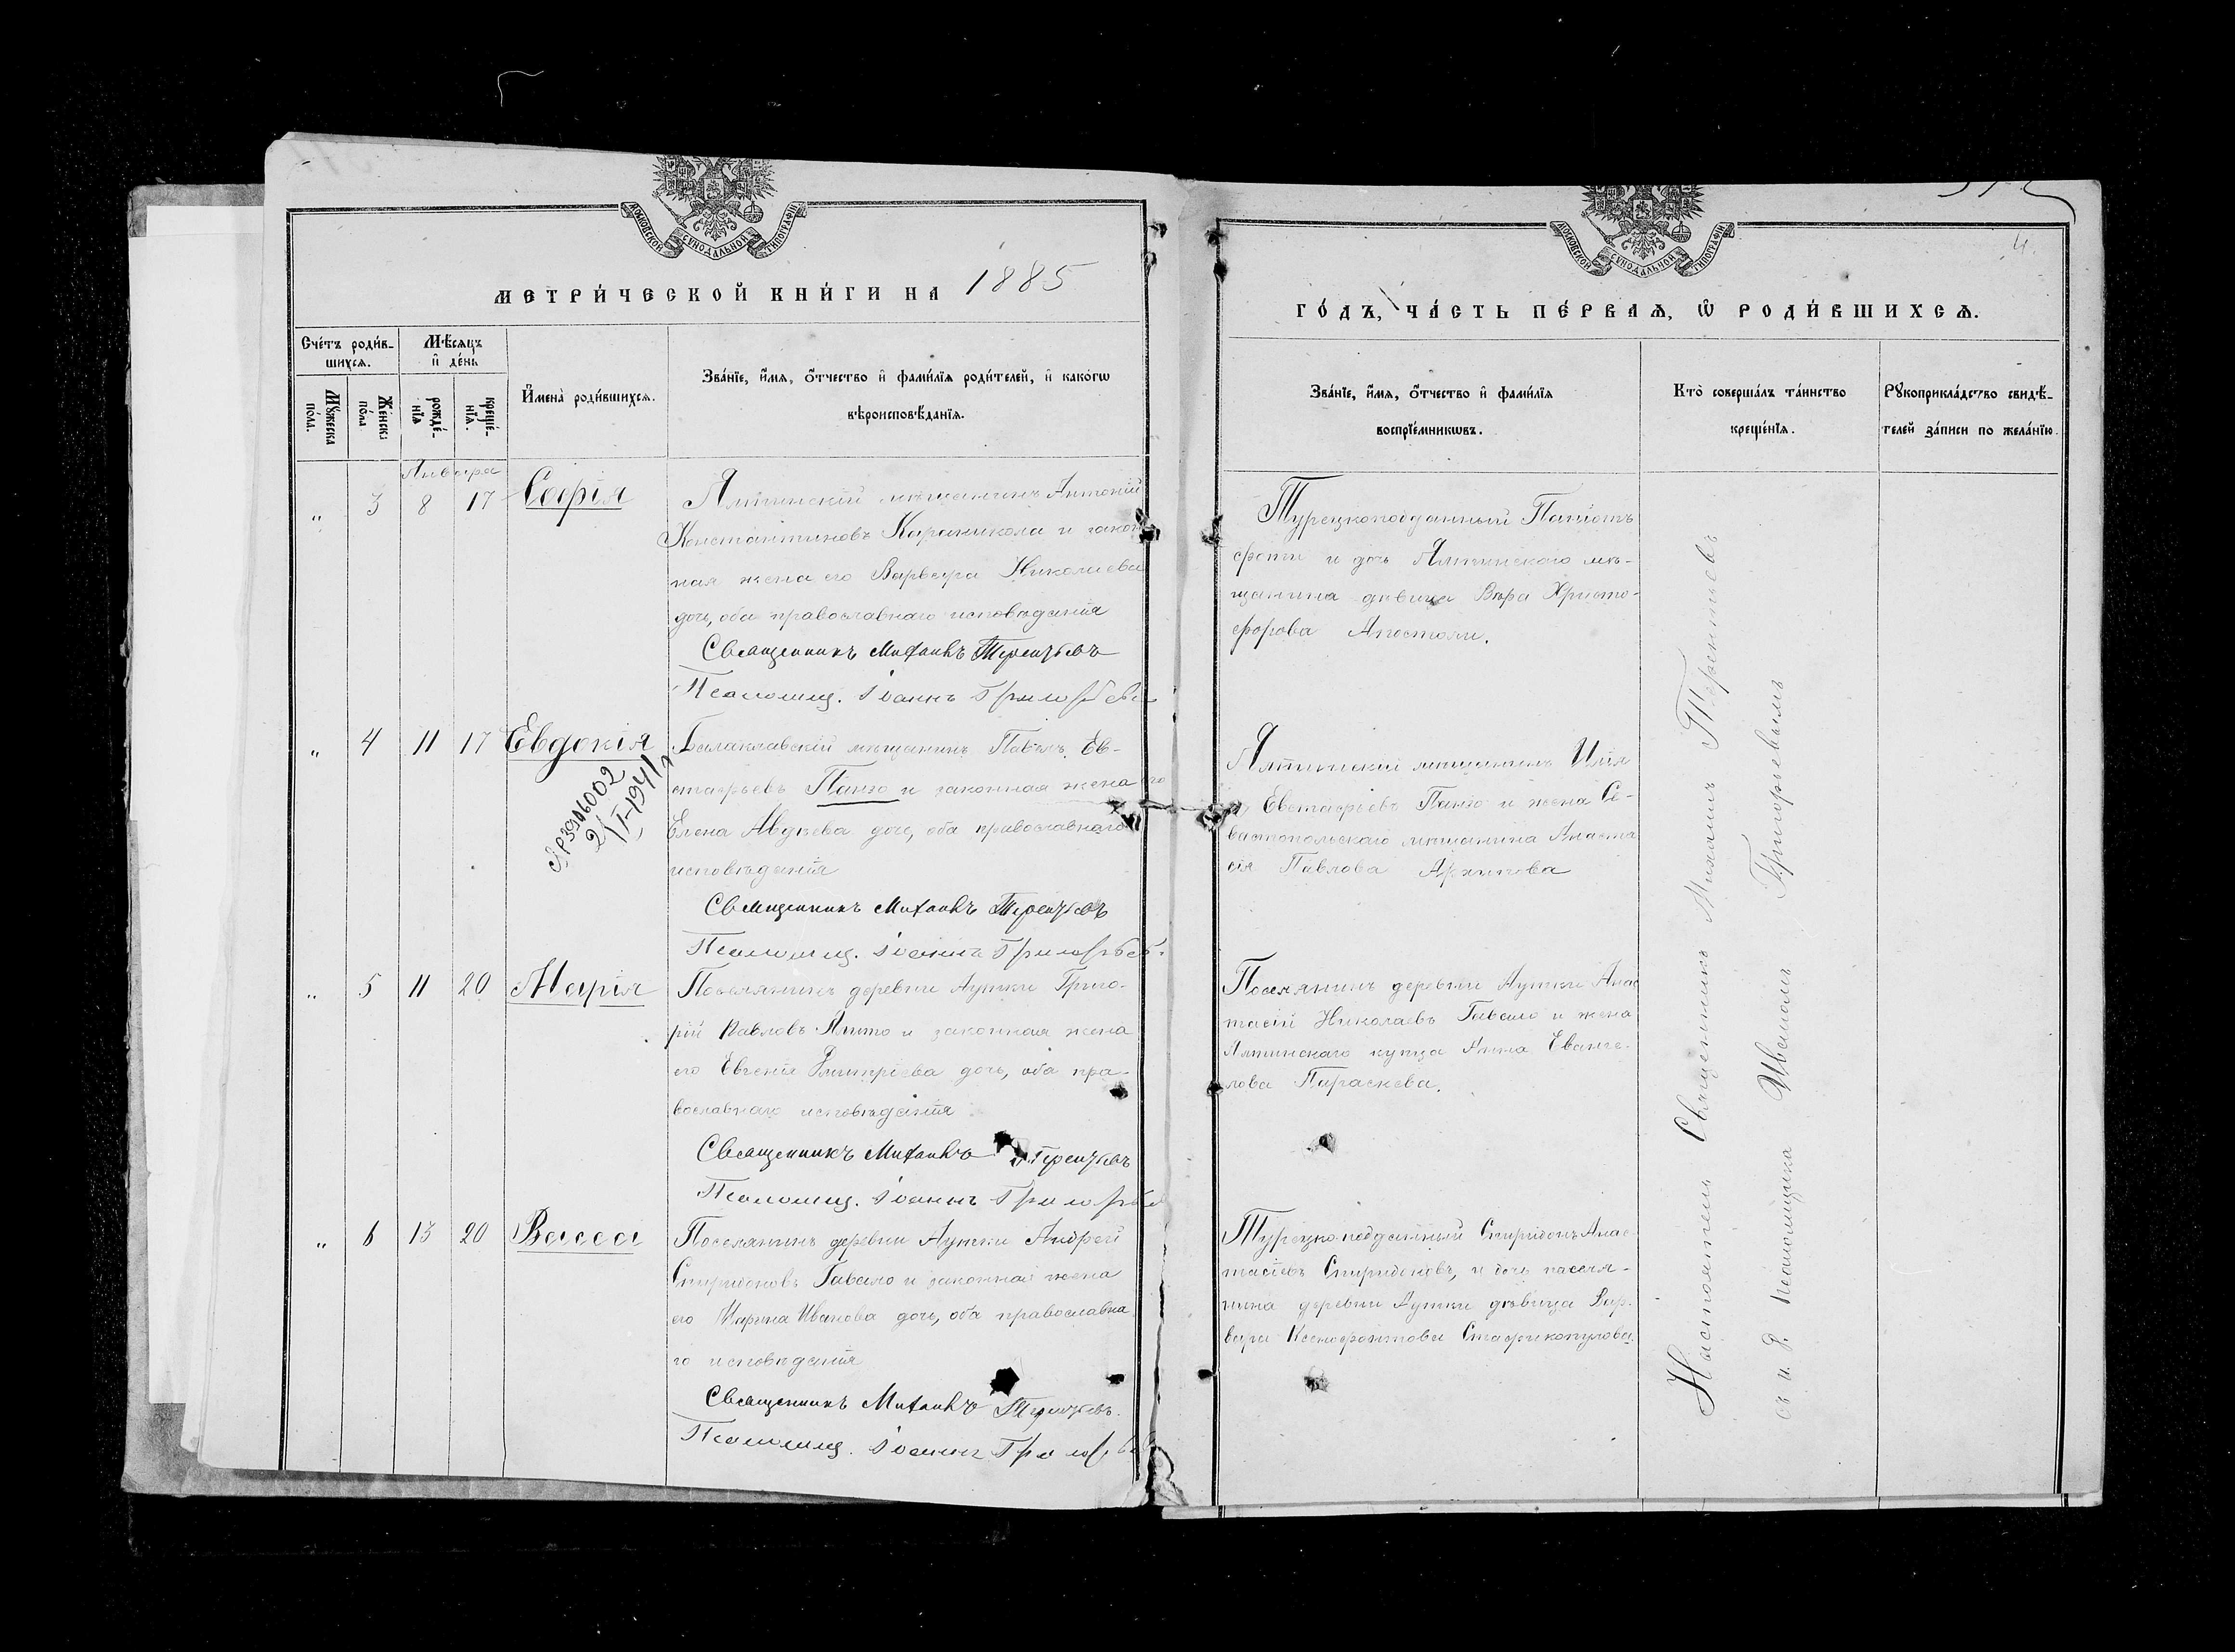 МОСКОВСКОЙ СѴНОДАЛЬНОЙ ТИПОГРАФІИ
МЕТРИ́ЧЕСКОЙ КНИ́ГИ НА 1885
Сче́тъ роди́в-
шихсѧ.
Мѣ́сѧцъ
и҆ де́нь
Мꙋ́жеска
по́ла.
Же́нска
по́ла
рожде́-
нїѧ
креще́-
нїѧ.
И҆мена̀ роди́вшихсѧ.
Зва́нїе, и҆́мѧ, ѻ҆́тчество и҆ фами́лїѧ роди́телей, и҆ како́гѡ
вѣроисповѣ́данїѧ.
Января
„ 3 8 17 Софія
Ялтинскій мѣщанинъ Антоній
Константиновъ Караникола и закон
ная жена его Варвара Николаева
дочь, оба православнаго исповѣданія
Священникъ Михаилъ Терентьевъ
Псаломщ. Іоаннъ Григорьевъ
„ 4 11 17 Евдокія
2/I-1941
Балаклавскій мѣщанинъ Павелъ Ев-
стафьевъ Панго и законная жена его
Елена Авдѣева дочь, оба православнаго
исповѣданія
Священникъ Михаилъ Терентьевъ
Псаломщ. Іоаннъ Григорьевъ.
„ 5 11 20 Марія
Поселянинъ деревни Аутки Григо-
рій Павловъ Яни и законная жена
его Евгенія Дмитріева дочь, оба пра-
вославнаго исповѣданія
Священникъ Михаилъ Терентьевъ
Псаломщ. Іоаннъ Григорьевъ
„ 6 13 20 Васса
Поселянинъ деревни Аутки Андрей
Спиридоновъ Гавало и законная жена
его Марина Иванова дочь, оба православна
го исповѣданія
Священникъ Михаилъ Терентьевъ.
Псаломщ. Іоаннъ Григорьевъ
МОСКОВСКОЙ СѴНОДАЛЬНОЙ ТИПОГРАФІИ
4
ГО́ДЪ, ЧА́СТЬ ПЕ́РВАѦ, Ѡ҆ РОДИ́ВШИХСѦ.
Зва́нїе, и҆́мѧ, ѻ҆́тчество и҆ фами́лїѧ
воспрїе́мникѡвъ.
Кто̀ соверша́лъ та́инство
креще́нїѧ.
Рꙋкоприкла́дство свидѣ́-
телей за́писи по жела́нїю.
Турецкоподданный Панаіотъ
Фоти и дочь Ялтинскаго мѣ-
щанина дѣвица Вѣра Христо-
форова Апостоли.
Ялтинскій мѣщанинъ Илія
Евстафьевъ Панго и жена Се-
вастопольскаго мѣщанина Анаста
сія Павлова Архипова
Поселянинъ деревни Аутки Анас
тасій Николаевъ Гавало и жена
Ялтинскаго купца Анна Еванге-
лова Параскева.
Турецко-подданный Спиридонъ Анас-
тасіевъ Спиридоновъ, и дочь поселя-
нина деревни Аутки дѣвица Вар-
вара Ксенофонтова Стафикопулова.
Настоятель Священникъ Михаилъ Терентьевъ
съ и. д. псаломщика Иваномъ Григорьевымъ